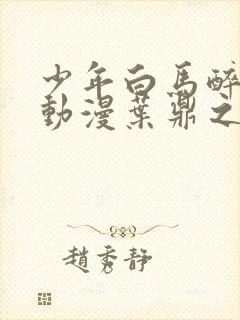 少年白馬醉
動漫葉鼎之
趙秀靜